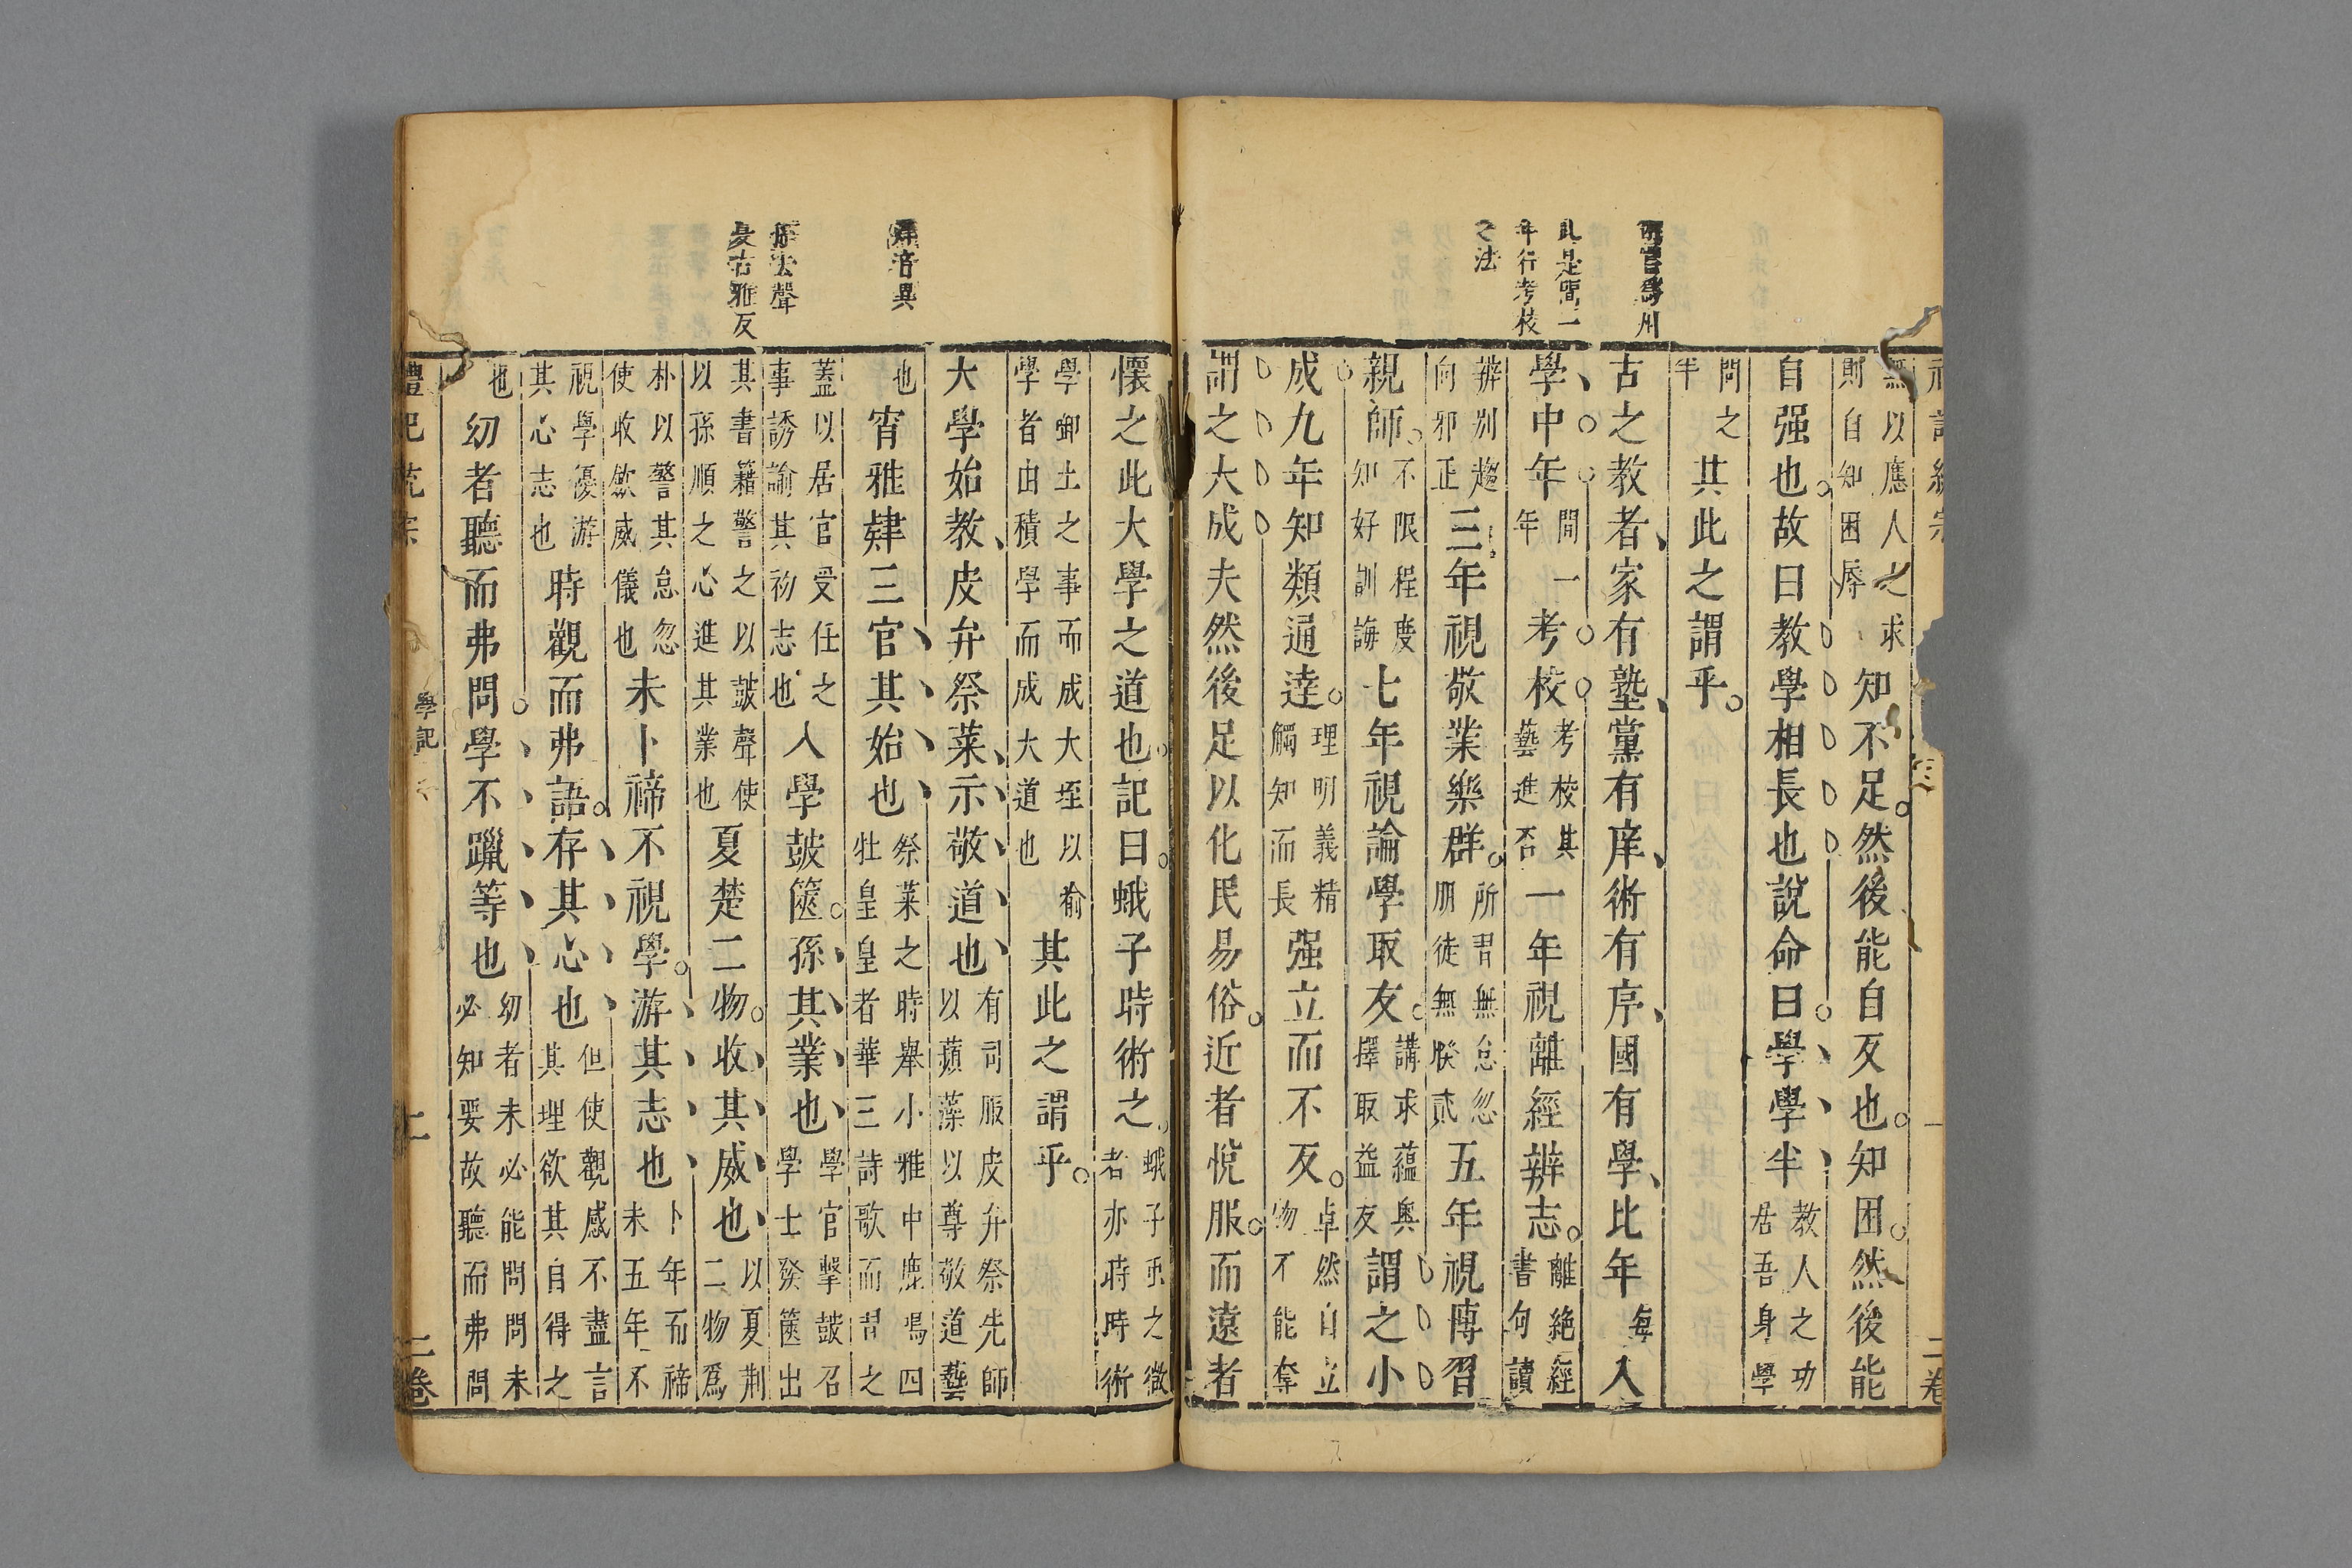 術當爲州
此是間一
年行考校
之法
無以應人之求則自知困辱知不足然後能自反也知困然後能
自强也故曰教學相長也說命曰學學半教人之功居吾身學
問之半其此之謂乎
古之教者家有塾黨有庠術有序國有學比年每入
學中年間一年考校考校其藝進否一年視離經辨志離絶經書句讀
辨别趨向邪正三年視敬業樂群所習無怠忽朋徒無睽貳五年視博習
親師不限程度知好訓誨七年視論學取友講求蘊奧擇取益友謂之小
成九年知類通達理明義精觸知而長强立而不反卓然自立物不能奪
謂之大成夫然後足以化民易俗近者悅服而遠者
肄音異
孫去聲
夏古雅反
懷之此大學之道也記曰蛾子時術之蛾子虫之微者亦時時術
學啣土之事而成大垤以喻學者由積學而成大道也其此之謂乎
大學始教皮弁祭菜示敬道也有司服皮弁祭先師以蘋藻以尊敬道藝
也宵雅肄三官其始也祭菜之時舉小雅中鹿鳴四牡皇皇者華三詩歌而習之
蓋以居官受任之事誘諭其初志也入學鼓篋孫其業也學官擊鼓召學士發篋出
其書籍警之以鼓聲使以孫順之心進其業也夏楚二物收其威也以夏荆二物爲
朴以警其怠忽使收斂威儀也未卜禘不視學游其志也卜年而禘未五年不
視學優游其心志也時觀而弗語存其心也但使觀感不盡言其理欲其自得之
也幼者聽而弗問學不躐等也幼者未必能問問未必知要故聽而弗問
學記
二卷